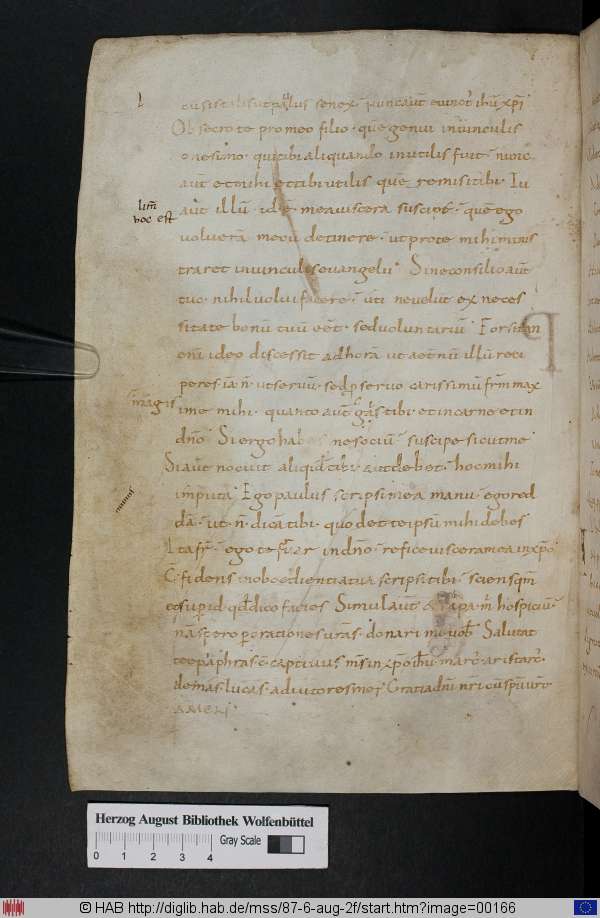 cu sis talis ut paulus senex nunc aut̄ & uinct' ihū xp̄i
Obsecro te pro meo filio · quē genui inuinculis
onesimo · qui tibi aliquando inutilis fuit · nunc
aut̄ & mihi & tibi utilis quē remisi tibi · Tu
aut̄ illū · id ē mea uiscera suscipe · quē ego
uoluerā mecū detinere · ut pro te mihi minis
traret inuinculis euangelii · Sine consilio aut̄
tuo · nihil uolui facere · uti ne uelut ex neces
sitate bonū tuū eēt · sed uoluntariū · Forsitan
enī ideo discessit ad horā ut aet̄nū illū reci
peres · iā n̄ ut seruū · sed p̱ seruo carissimū frm̄ max
ime mihi · quanto aut̄ magis tibi · & in carne & in
dn̄o · Si ergo habes me sociū suscipe sicut me
Si aut̄ nocuit aliqd̄ tibi aut debet · hoc mihi
imputa · Ego paulus scripsi mea manu · ego red
dā · ut n̄ dicā tibi · quod & te ipsū mihi debes
Ita fr̄ · ego te fruar in dn̄o · refice uiscera mea in xp̄o
C̄fidens in oboedientia tua scripsi tibi · sciens qm̄
& sup̱ id qd̄ dico facies Simul aut̄ & para m̄ hospitiū ·
nā spero p̱ orationes uras · donari me uob̄ Salutat
te epaphras c̄captiuus ms̄ in xp̄o ihū · marc' aristarc'
demas lucas · adiutores mei Gratia dn̄i nr̄i cū spū uro
AMEN
lim̄
hoc est
magis
Herzog August Bibliothek Wolfenbüttel
Gray Scale
0 1 2 3 4
© HAB http://diglib.hab.de/mss/87-6-aug-2f/start.htm?image=00166